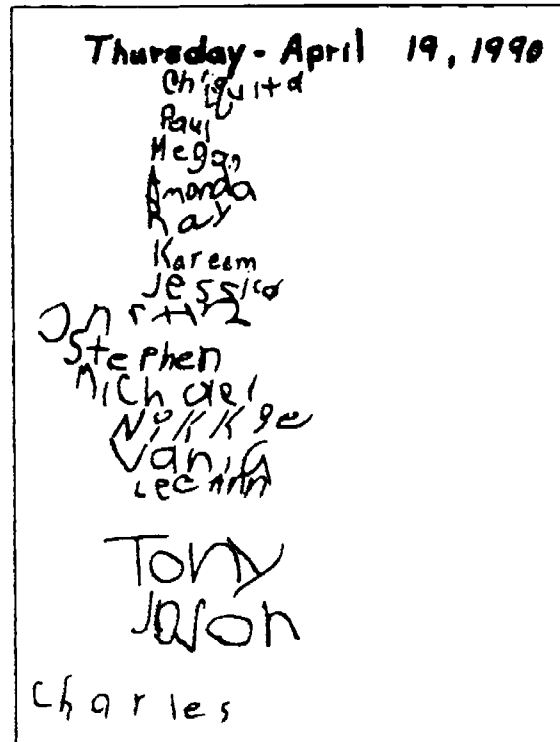 Thursday - April 19, 1990
Chiquita
Paul
Megan
Amanda
Ray
Kareem
Jessica
Stephen
Michael
Nikkie
Vania
LeeAnn
Tony
Jason
Charles